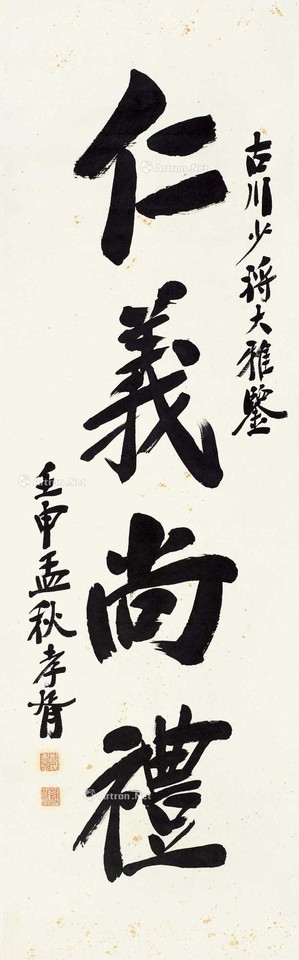 古川少將大雅鑒
仁義尚禮
壬申孟秋孝胥
Artron.Net
Artron.Net
Artron.Net